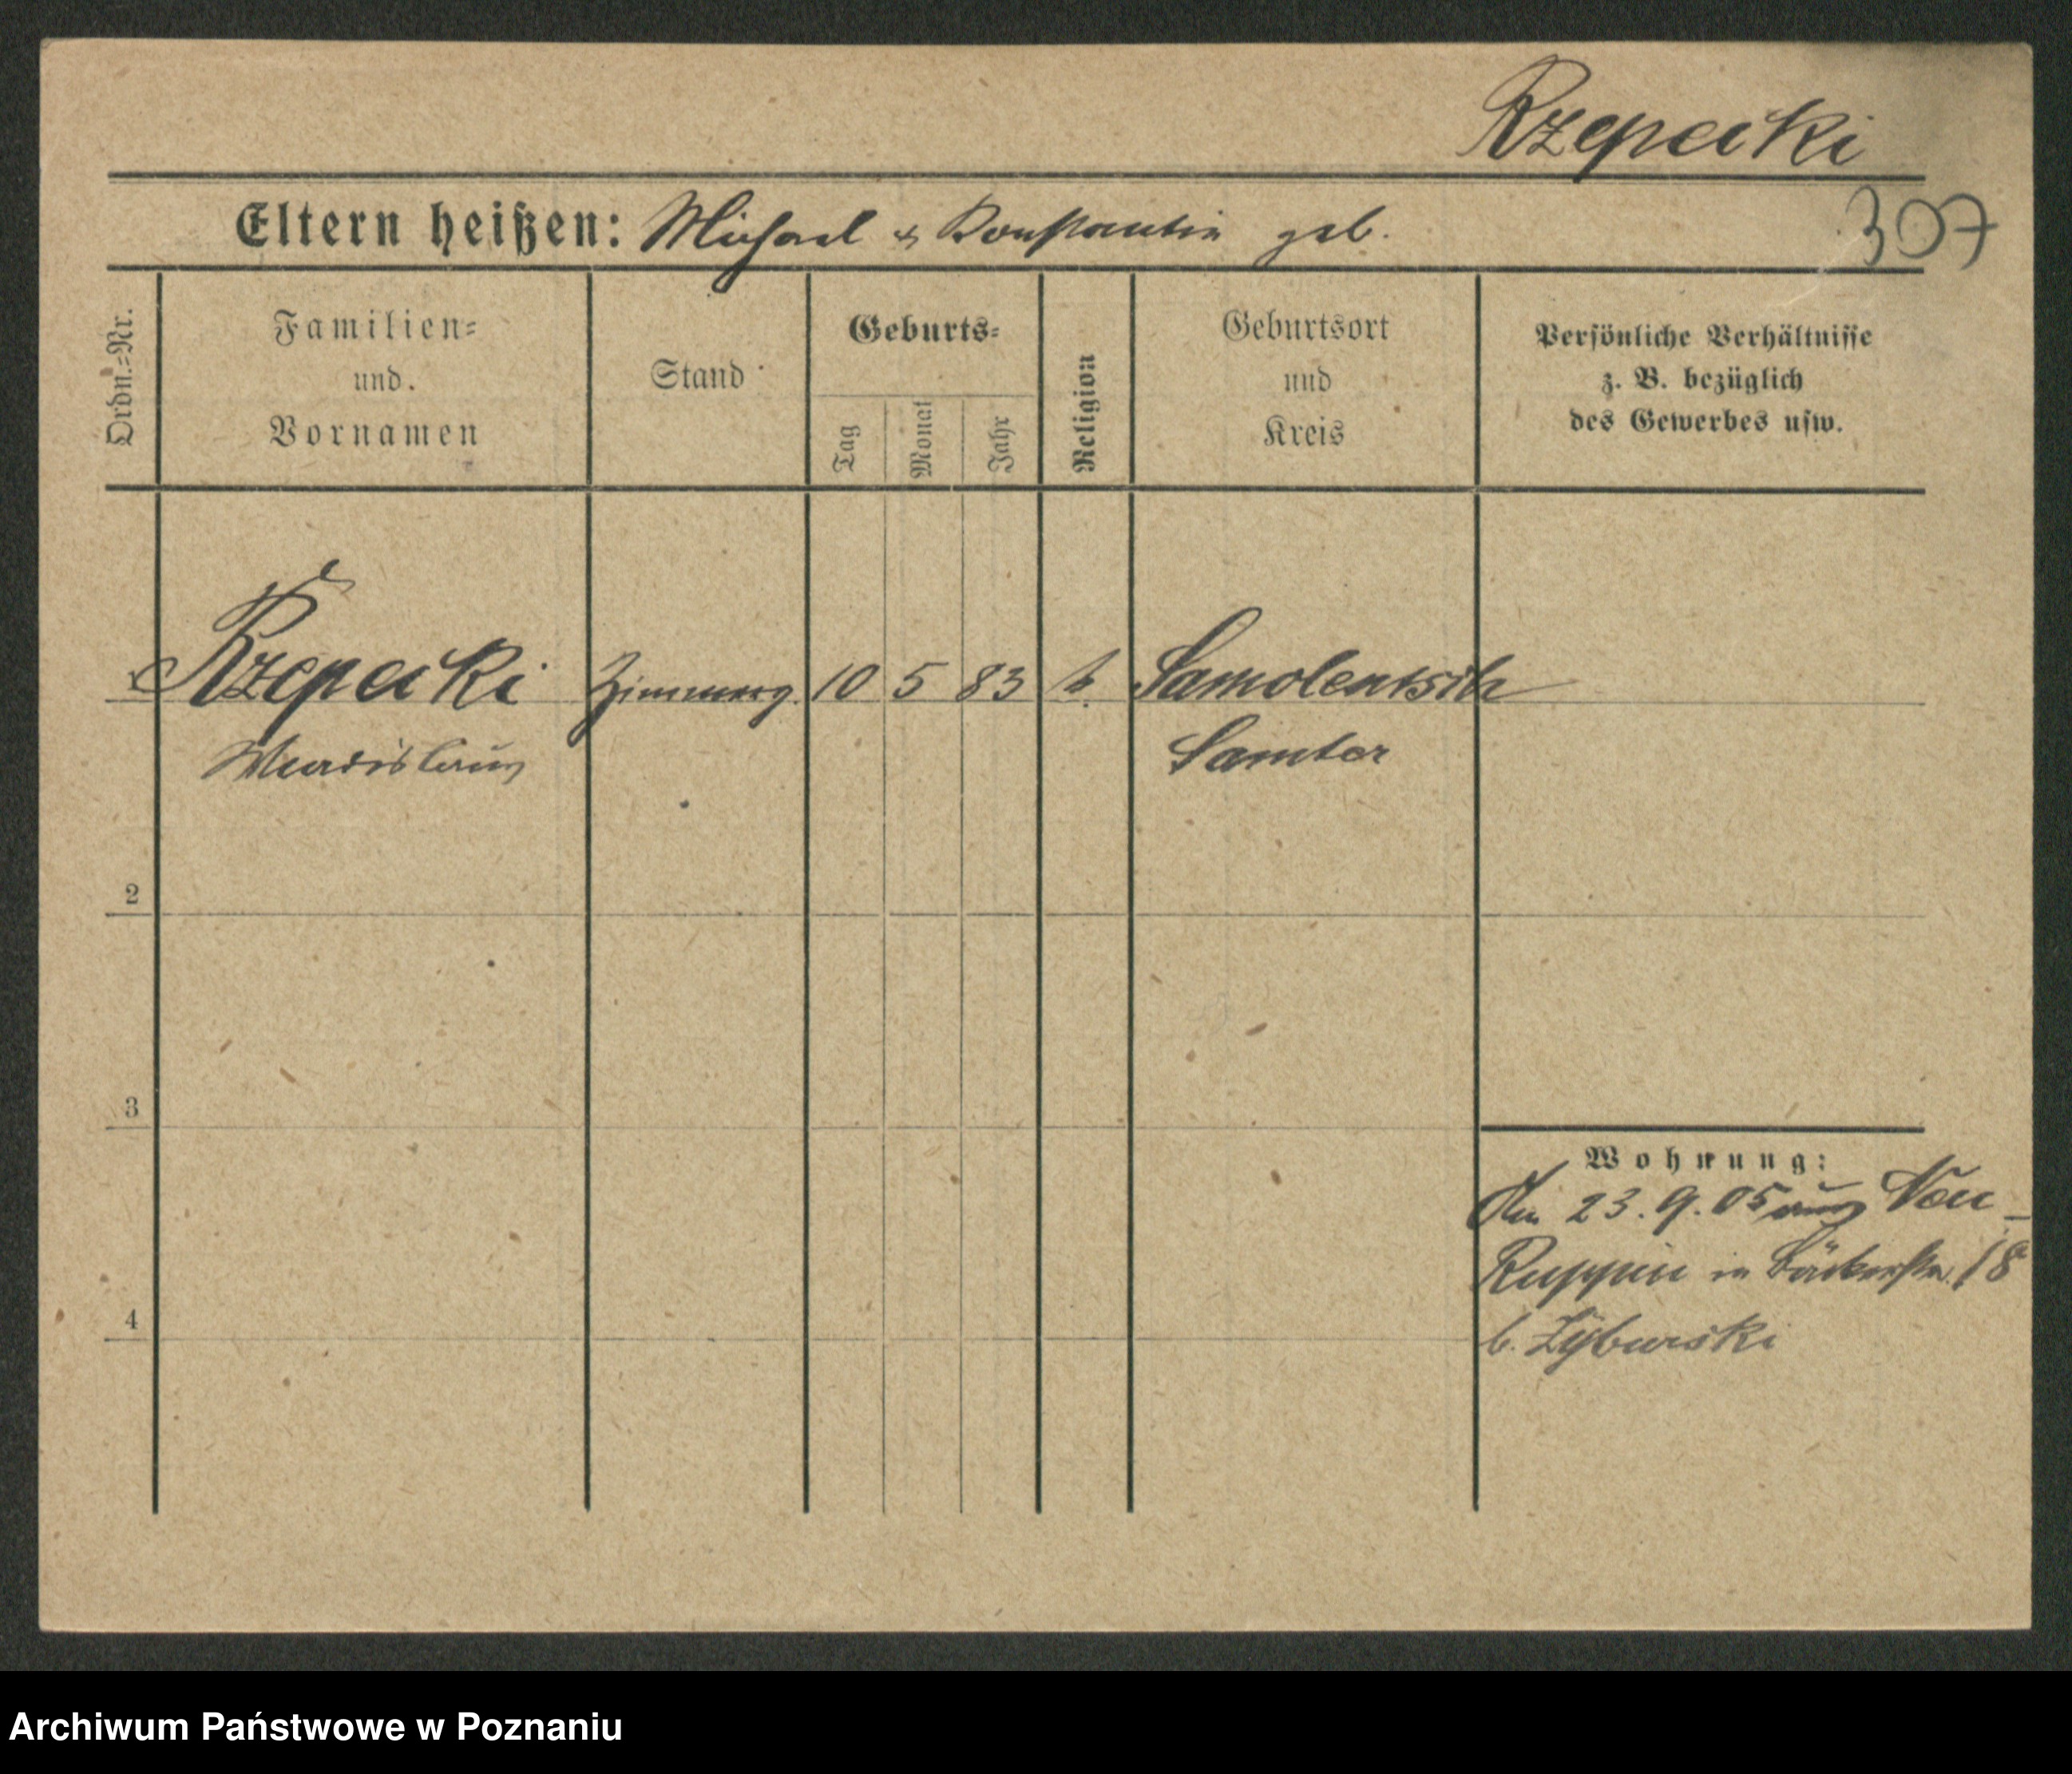 Rzepecki
307
Eltern heißen: Michael & Konstantin geb.
Ordn.=Nr.
Familien=
und
Vornamen
Stand
Geburts=
Tag
Monat
Jahr
Religion
Geburtsort
und
Kreis
Persönliche Verhältnisse
z. B. bezüglich
des Gewerbes usw.
1 Rzepecki Zimmerg. 10 5 83 k. Samolentsch
Wladislaus Samter
2
3
4
Wohnung:
Am 23.9.05 aus Neu-
Ruppin in Bäckerstr. 18
b. Zyburski
Archiwum Państwowe w Poznaniu